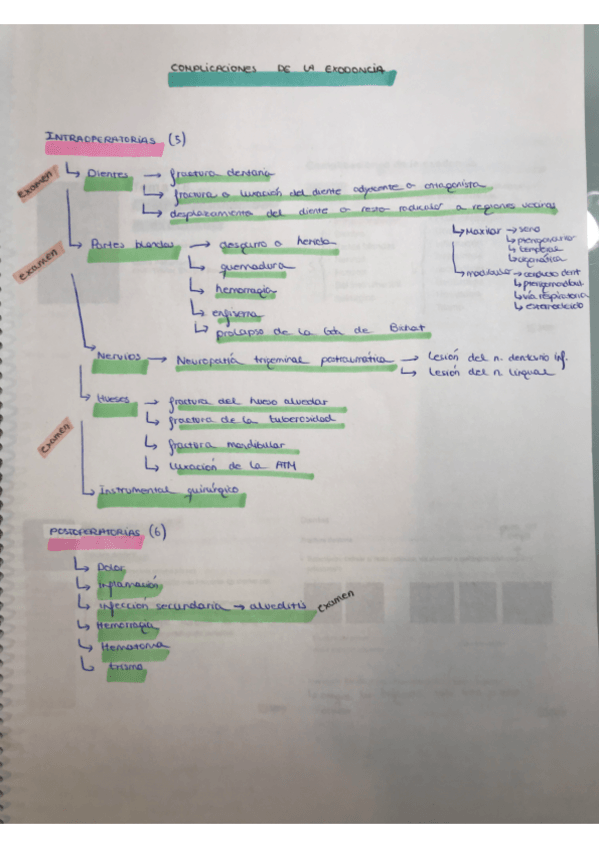 COMPLICACIONES DE LA EXODONCIA
INTRAOPERATORIAS (5)
examen
Dientes → fractura dentaria
fractura o luxación del diente adyacente o antagonista
desplazamiento del diente o resto radicular a regiones vecinas
Maxilar → seno
pterigomaxilar
temporal
cigomática
mandibular → conducto dent
pterigomandibul
vía respiratoria
examen
Partes blandas → desgarro o herida
quemadura
hemorragia
enfisema
prolapso de la bola de Bichat
Nervios → Neuropatía trigeminal postraumática → Lesión del n. dentario inf.
Lesión del n. lingual
Huesos → fractura del hueso alveolar
examen
fractura de la tuberosidad
fractura mandibular
luxación de la ATM
instrumental quirúrgico
POSTOPERATORIAS (6)
Dolor
Inflamación
infección secundaria → alveolitis examen
Hemorragia
Hematoma
trismo